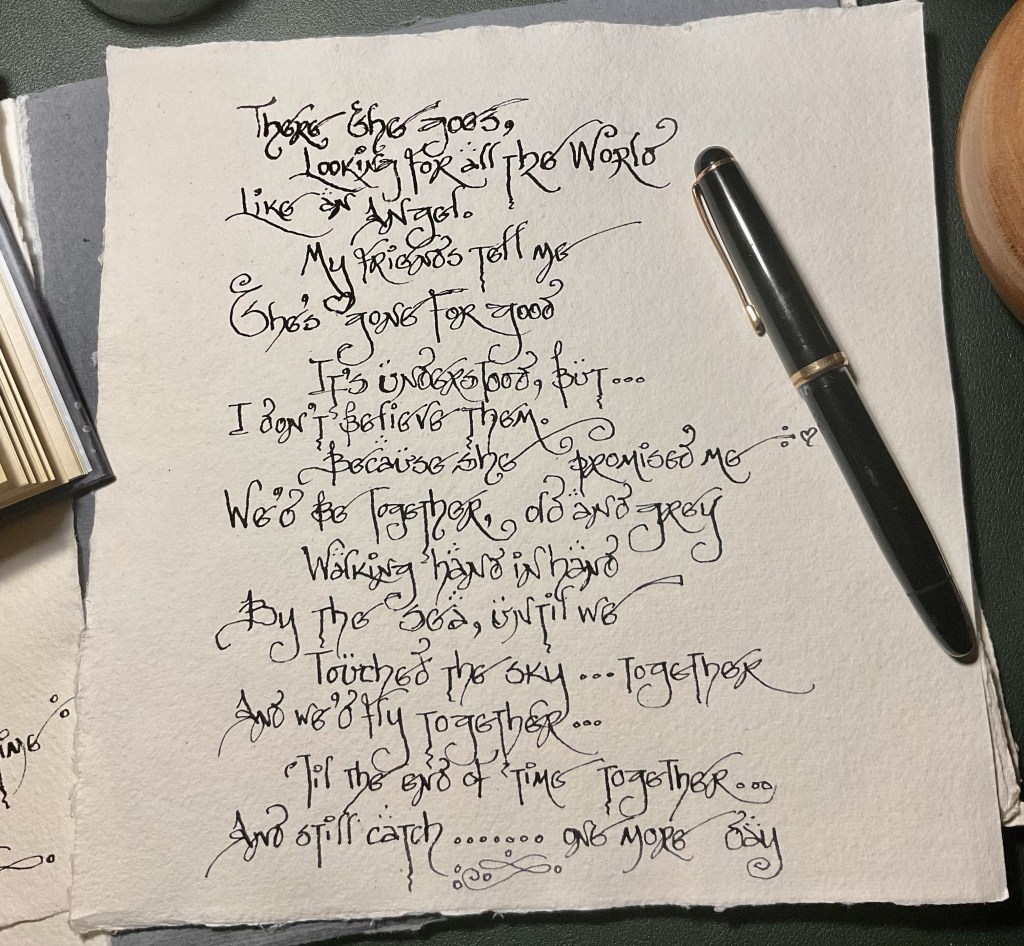 There She goes,
Looking for all the World
Like an Angel.
My friends tell me
She's gone for good
It's understood, but...
I don't believe them.
Because she promised me
We'd be together, old and grey
Walking hand in hand
By the sea, until we
Touched the sky ... together
And we'd fly together...
'Til the end of time together...
And still catch ....... one more day